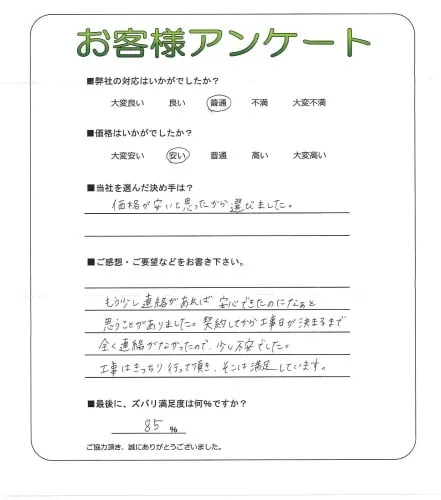 お客様アンケート
■弊社の対応はいかがでしたか？
大変良い 良い 普通 不満 大変不満
■価格はいかがでしたか？
大変安い 安い 普通 高い 大変高い
■当社を選んだ決め手は？
価格が安いと思ったから選びました。
■ご感想・ご要望などをお書き下さい。
もう少し連絡があれば安心できたのになぁと
思うことがありました。契約してから工事日が決まるまで
全く連絡がなかったので、少し不安でした。
工事はきっちり行って頂き、そこは満足しています。
■最後に、ズバリ満足度は何％ですか？
85 ％
ご協力頂き、誠にありがとうございました。